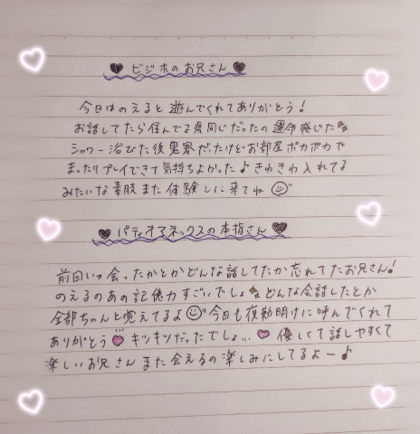 🖤ビジホのお兄さん🖤
今日はのえると遊んでくれてありがとう!
お話してたら住んでる県同じだったの運命感じた
シャワー浴びた後寒かったけどお部屋ポカポカで
まったりプレイできて気持ちよかった♪ ぎゅぎゅ入れてる
みたいな素股また体験しに来てね☺
🖤パティオアネックスの本指さん🖤
前回いつ会ったかとかどんな話してたか忘れてたお兄さん!
のえるのあの記憶力すごいでしょ どんな会話したとか
全部ちゃんと覚えてるよ☺今日も夜勤明けに呼んでくれて
ありがとう💗 キツキツだったでしょ...💗 優しくて話しやすくて
楽しいお兄さん また会えるの楽しみにしてるよー♪